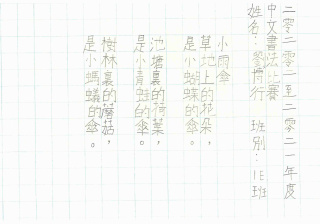 二零二零至二零二一年度
中文書法比賽
姓名：劉博行 班別：1E班
小雨傘
草地上的花朵，
是小蝴蝶的傘。
池塘裏的荷葉，
是小青蛙的傘。
樹林裏的蘑菇，
是小螞蟻的傘。